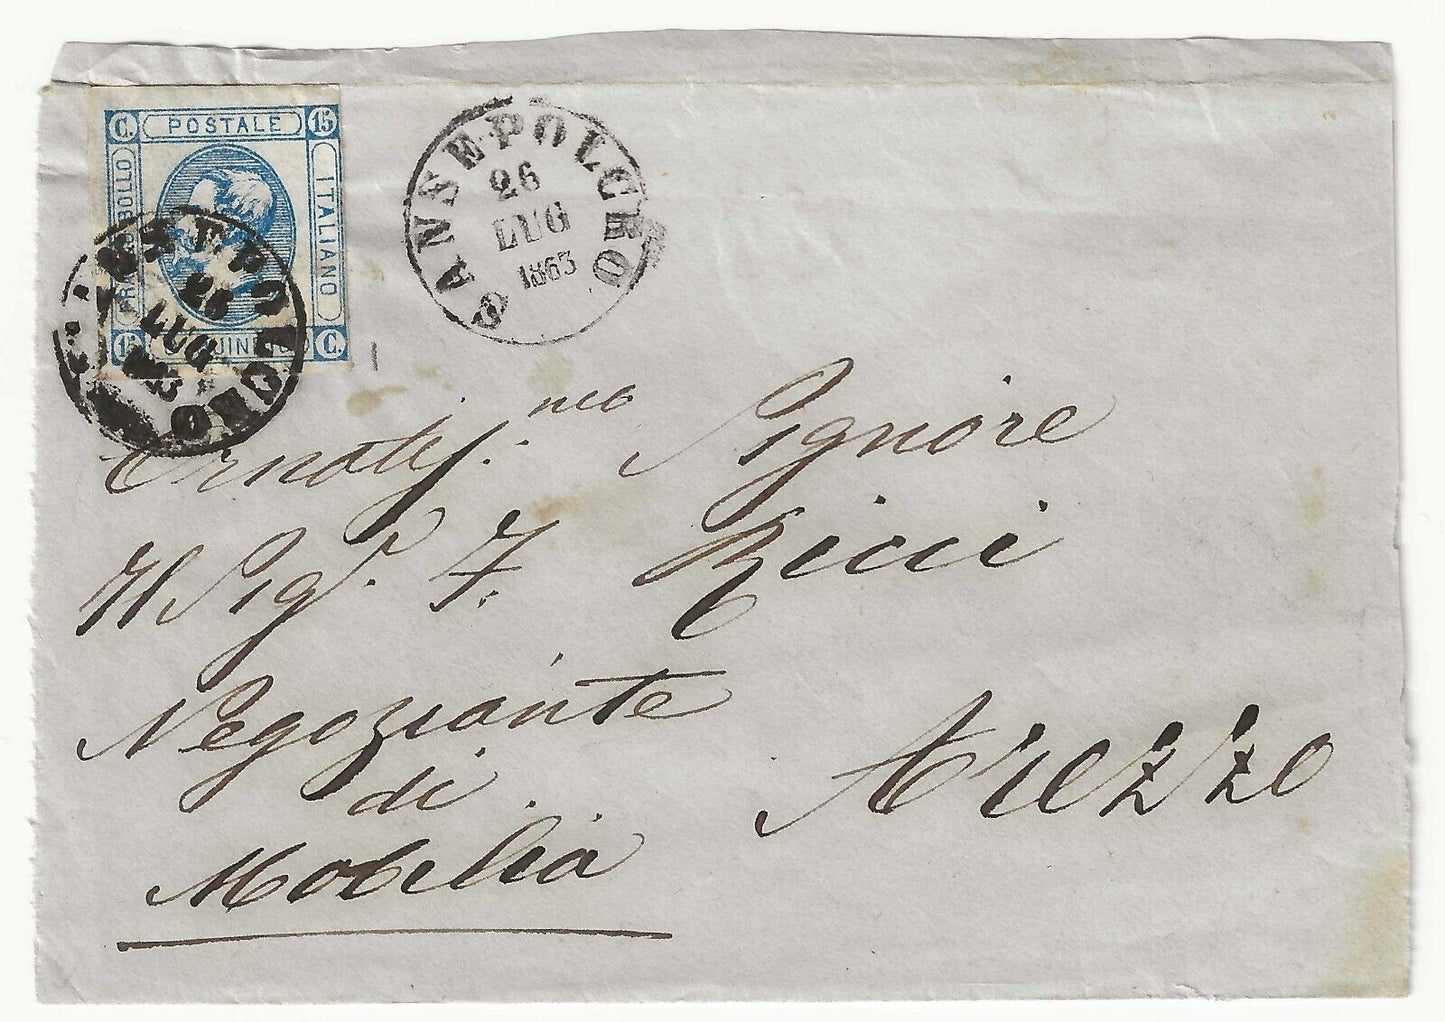 C. POSTALE 15
FRANCOBOLLO
ITALIANO
15 QUINDICI C.
SANSEPOLCRO
26
LUG
1863
SANSEPOLCRO
26
LUG
1863
Ornatis.mo Signore
Il Sigr. F. Ricci
Negoziante
di
Mobilia
Arezzo